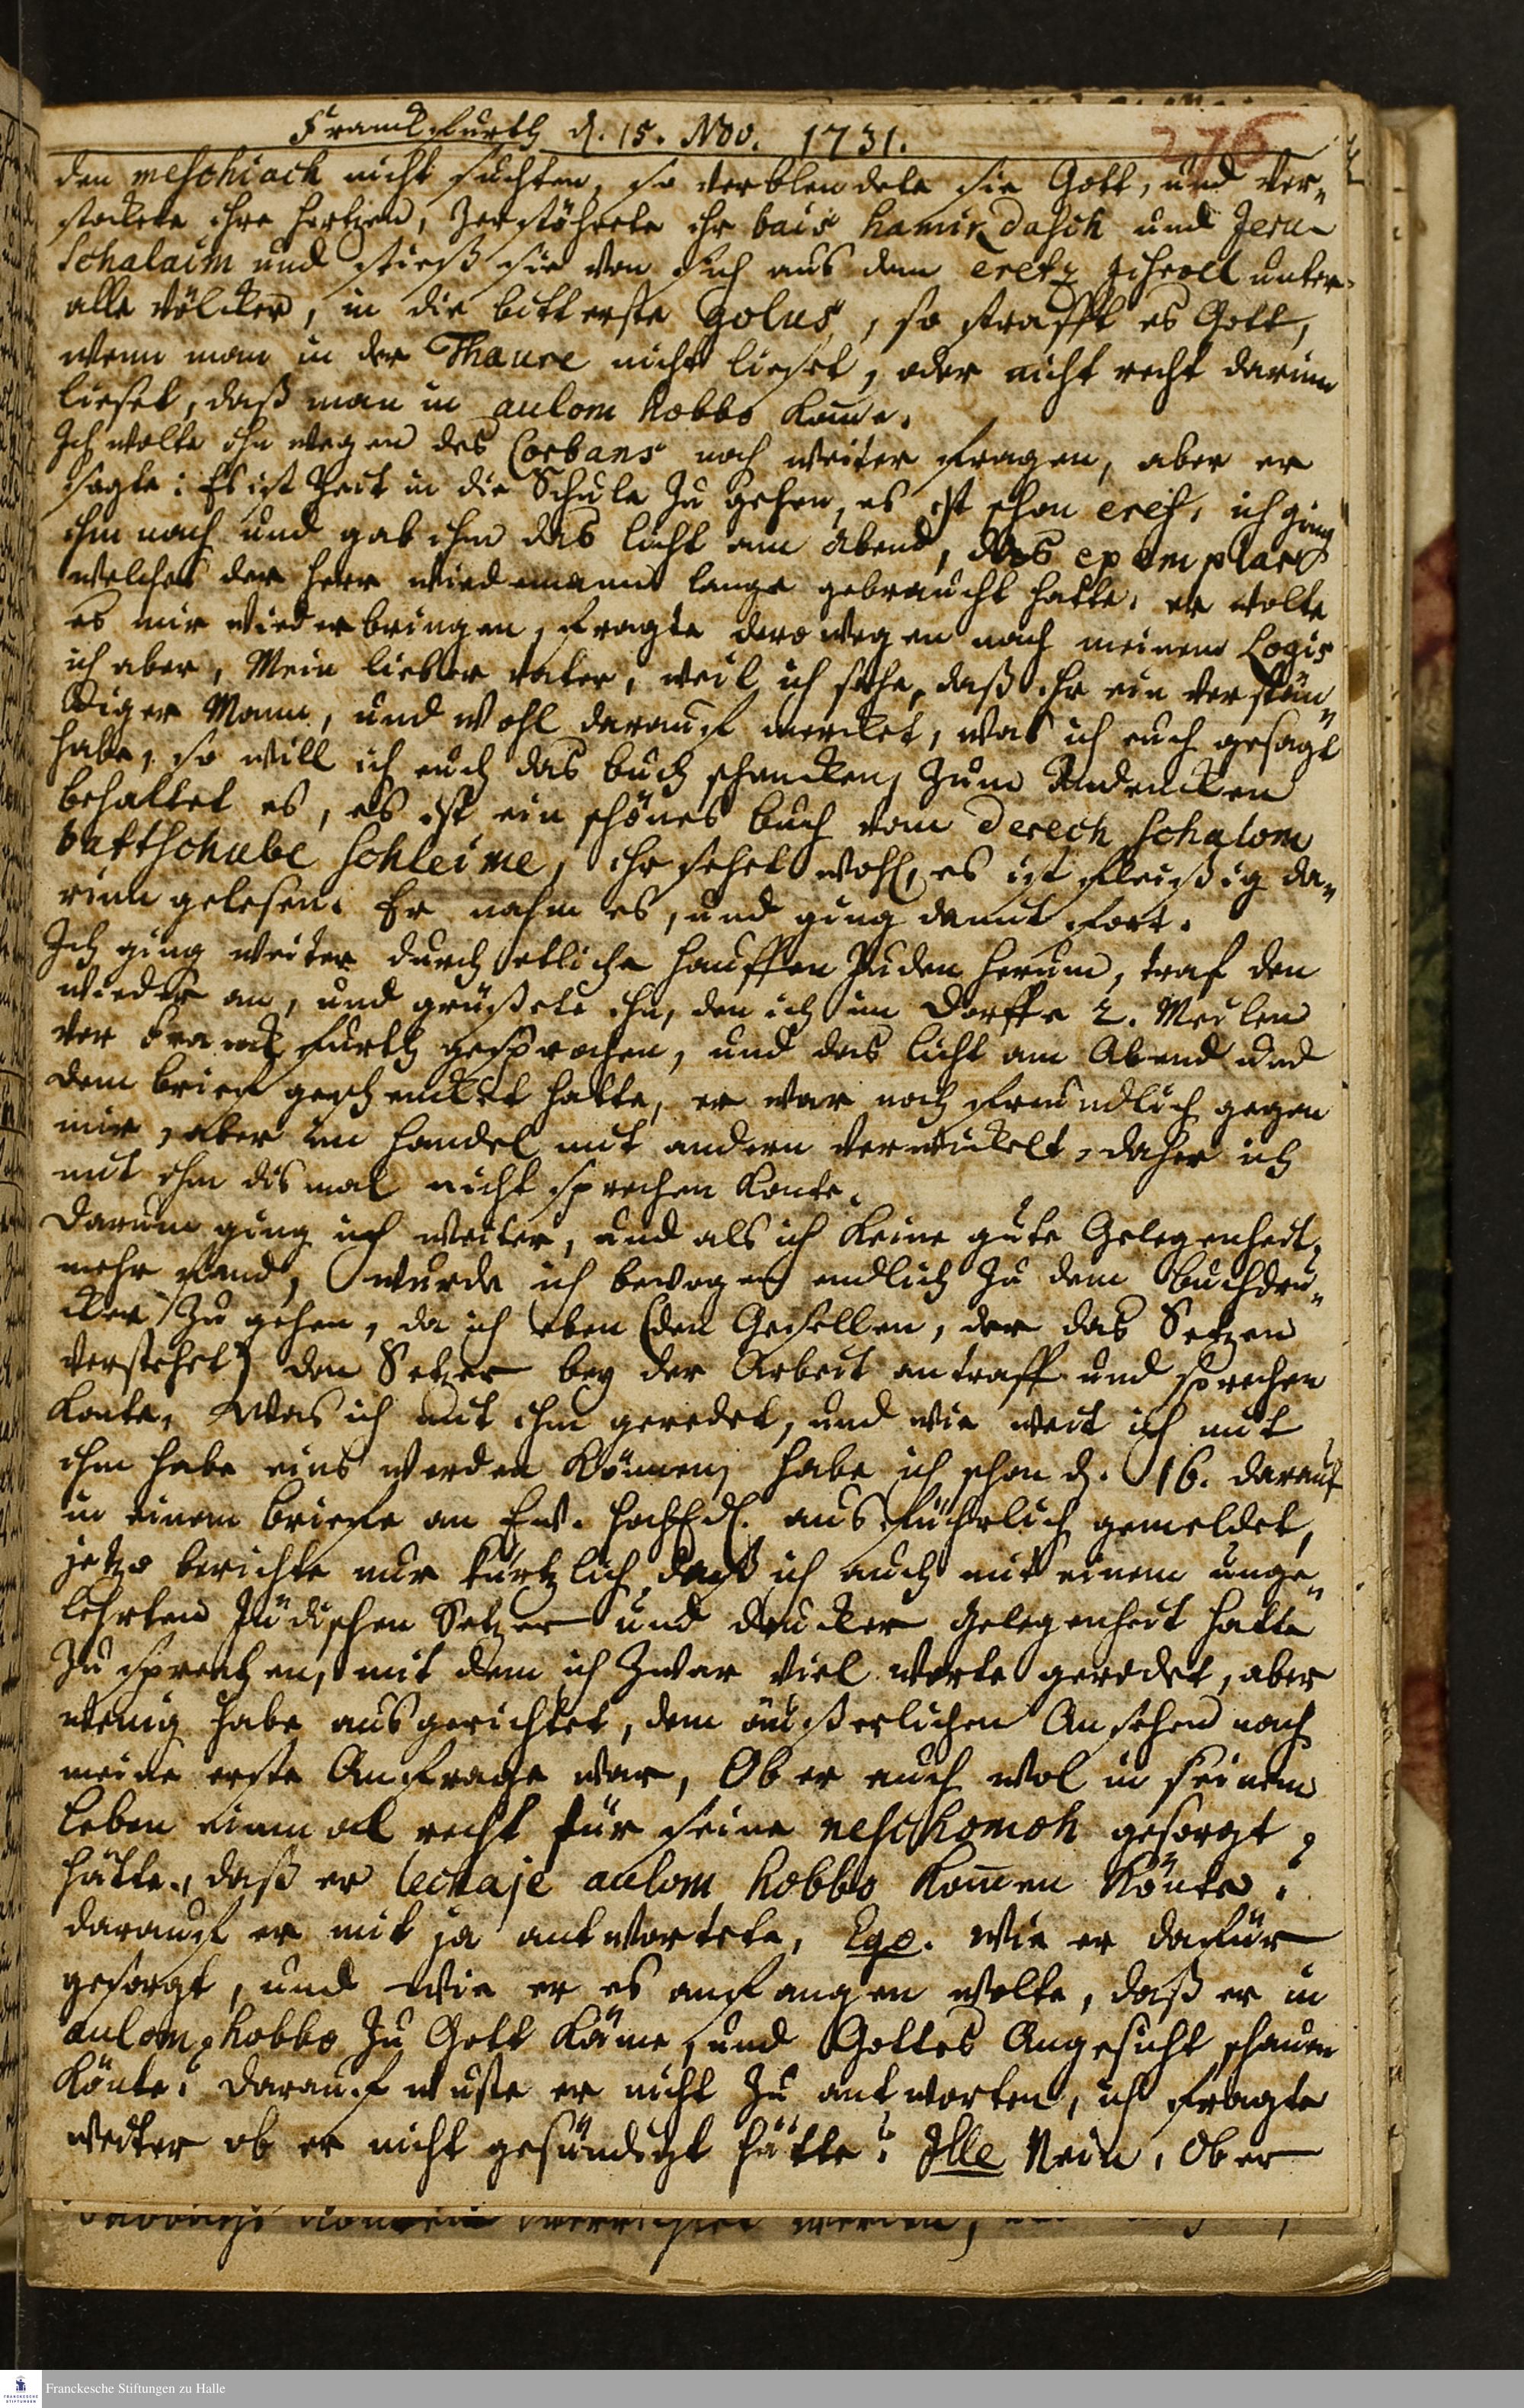 Franckfurth d. 15. Nov. 1731.
276
den meschiach nicht suchten, so verblendete sie Gott, und ver„
stockete ihre Hertzen, Zerstöhrete ihr bais hamikdasch und Jeru-
schalaim und stieß sie von sich aus dem eretz jisroel unter
alle Völcker, in die bitterste golus, so strafft es Gott,
wenn man in der Thaure nicht lieset, oder nicht recht darinn
lieset, daß man in aulom habbo kom̅e.
Ich wolte ihn wegen des Corbans noch weiter fragen, aber er
sagte: Es ist Zeit in die Schule zu gehen, es ist schon eref, ich ging
ihm nach und gab ihm das Licht am Abend, das exemplar
welches der Herr Wiedemann lange gebraucht hatte. er wolte
es mir wiederbringen, fragte derowegen nach meinem Logis
ich aber, Mein lieber Vater, weil ich sehe, daß ihr ein verstän„
diger Mann, und wohl darauf mercket, was ich euch gesagt
habe, so will ich euch das buch schencken, zum Andencken
behaltet es, es ist ein schönes buch vom derech schalom
battschube schleime, ihr sehet wohl, es ist fleißig da„
rinn gelesen. Er nahm es, und ging damit fort.
Ich ging weiter durch etliche Hauffen Juden herum, traf den
wieder an, und grüßete ihn, den ich im Dorffe 2. Meilen
vor Franckfurth gesprochen, und das Licht am Abend und
dem brief geschencket hatte, er war noch freundlich gegen
mir, aber im Handel mit andern verwickelt, daher ich
mit ihm dismal nicht sprechen konte.
Darum ging ich weiter, und als ich keine gute Gelegenheit
mehr fand, wurde ich bewogen endlich zu dem Buchdru„
cker zu gehen, da ich eben (den Gesellen, der das Setzen
verstehet) den Setzer bey der Arbeit antraff und sprechen
konte, Was ich mit ihm geredet, und wie weit ich mit
ihm habe eins werden können, habe ich schon d. 16. darauf
in einem briefe an Ew. HochEdl. ausführlich gemeldet,
jetzo berichte nur kürtzlich, daß ich auch mit einem unge„
lehrten Jüdischen Setzer und drucker Gelegenheit hatte
zu sprechen, mit dem ich zwar viel Worte geredet, aber
wenig habe ausgerichtet, dem äußerlichen Ansehen nach
meine erste Anfrage war, Ob er auch wol in seinem
Leben einmal recht für seine neschomoh gesorgt
hätte, daß er lechaje aulom habbo kom̅en könte?
darauf er mit ja antwortete, Ego. Wie er dafür
gesorgt, und wie er es anfangen wolte, daß er in
aulom habbo zu Gott käme, und Gottes Angesicht schauen
könte? Darauf wuste er nicht zu antworten, ich fragte
weiter ob er nicht gesündigt hätte? Ille Nein, Ob er
Franckesche Stiftungen zu Halle